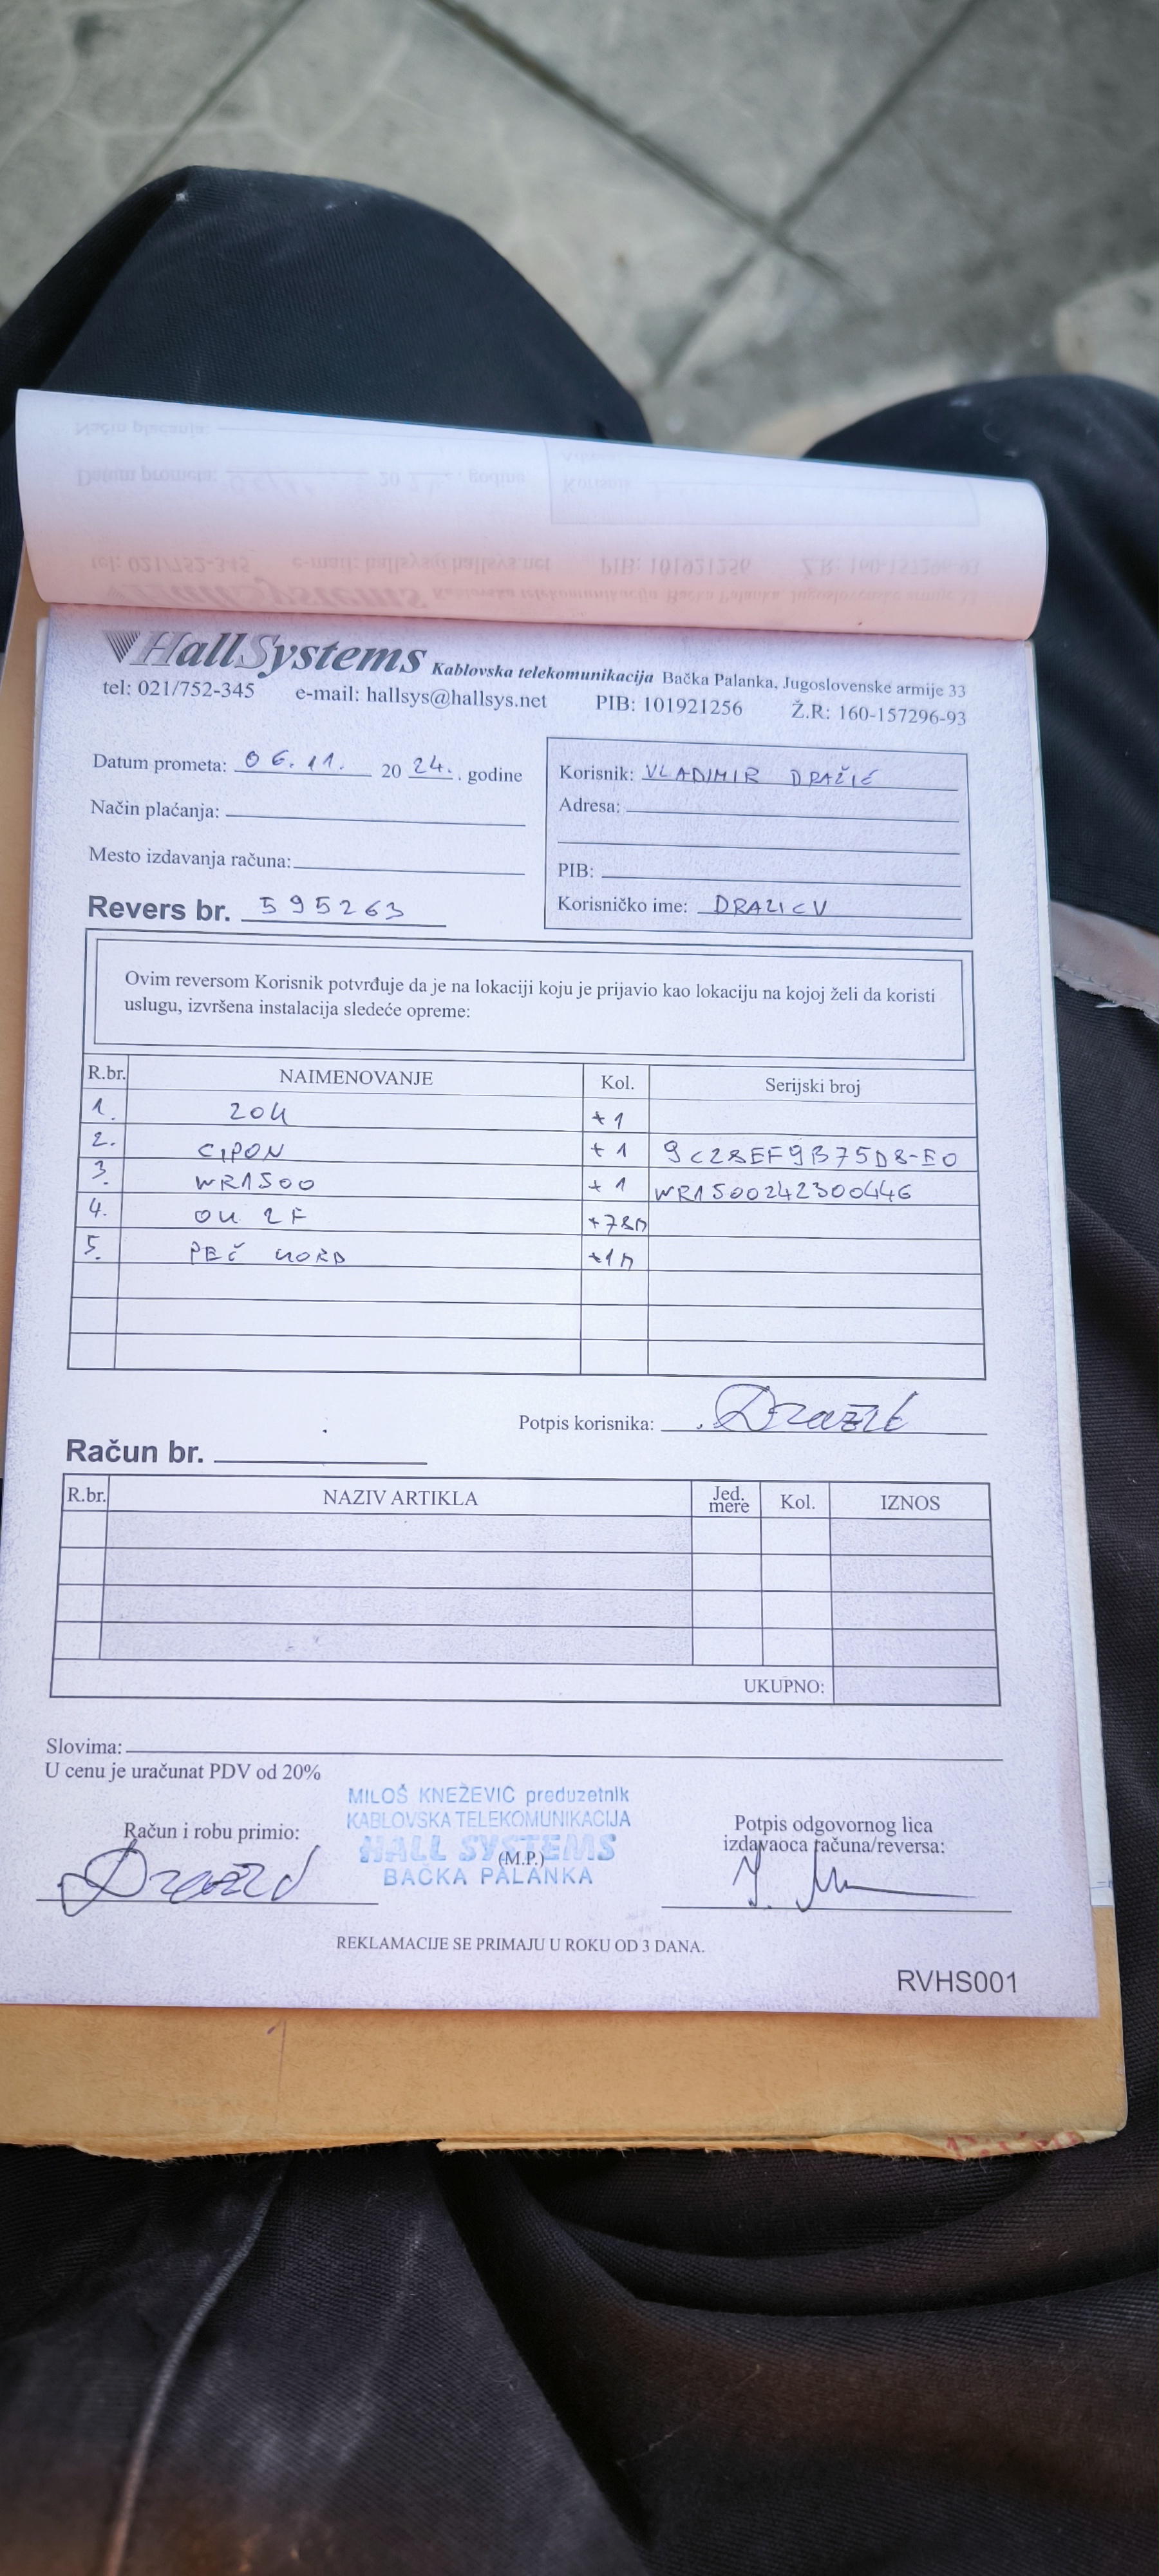 HallSystems Kablovska telekomunikacija Bačka Palanka, Jugoslovenske armije 33
tel: 021/752-345 e-mail: hallsys@hallsys.net PIB: 101921256 Ž.R: 160-157296-93
Datum prometa: 06.11. 20 24. . godine
Način plaćanja:
Mesto izdavanja računa:
Revers br. 595263
Korisnik: VLADIMIR DRAŽIĆ
Adresa:
PIB:
Korisničko ime: DRAZICV
Ovim reversom Korisnik potvrđuje da je na lokaciji koju je prijavio kao lokaciju na kojoj želi da koristi
uslugu, izvršena instalacija sledeće opreme:
R.br. NAIMENOVANJE Kol. Serijski broj
1. ZOK +1
2. CIPON +1 9C28EF9B75D8-E0
3. WR1500 +1 WR1500242300446
4. OK 2F +78m
5. PEČ KORD +1m
Potpis korisnika: Dražić
Račun br.
R.br. NAZIV ARTIKLA Jed. mere Kol. IZNOS
UKUPNO:
Slovima:
U cenu je uračunat PDV od 20%
MILOŠ KNEŽEVIĆ preduzetnik
KABLOVSKA TELEKOMUNIKACIJA
HALL SYSTEMS
(M.P.)
BAČKA PALANKA
Račun i robu primio:
Dražić
Potpis odgovornog lica
izdavaoca računa/reversa:
REKLAMACIJE SE PRIMAJU U ROKU OD 3 DANA.
RVHS001